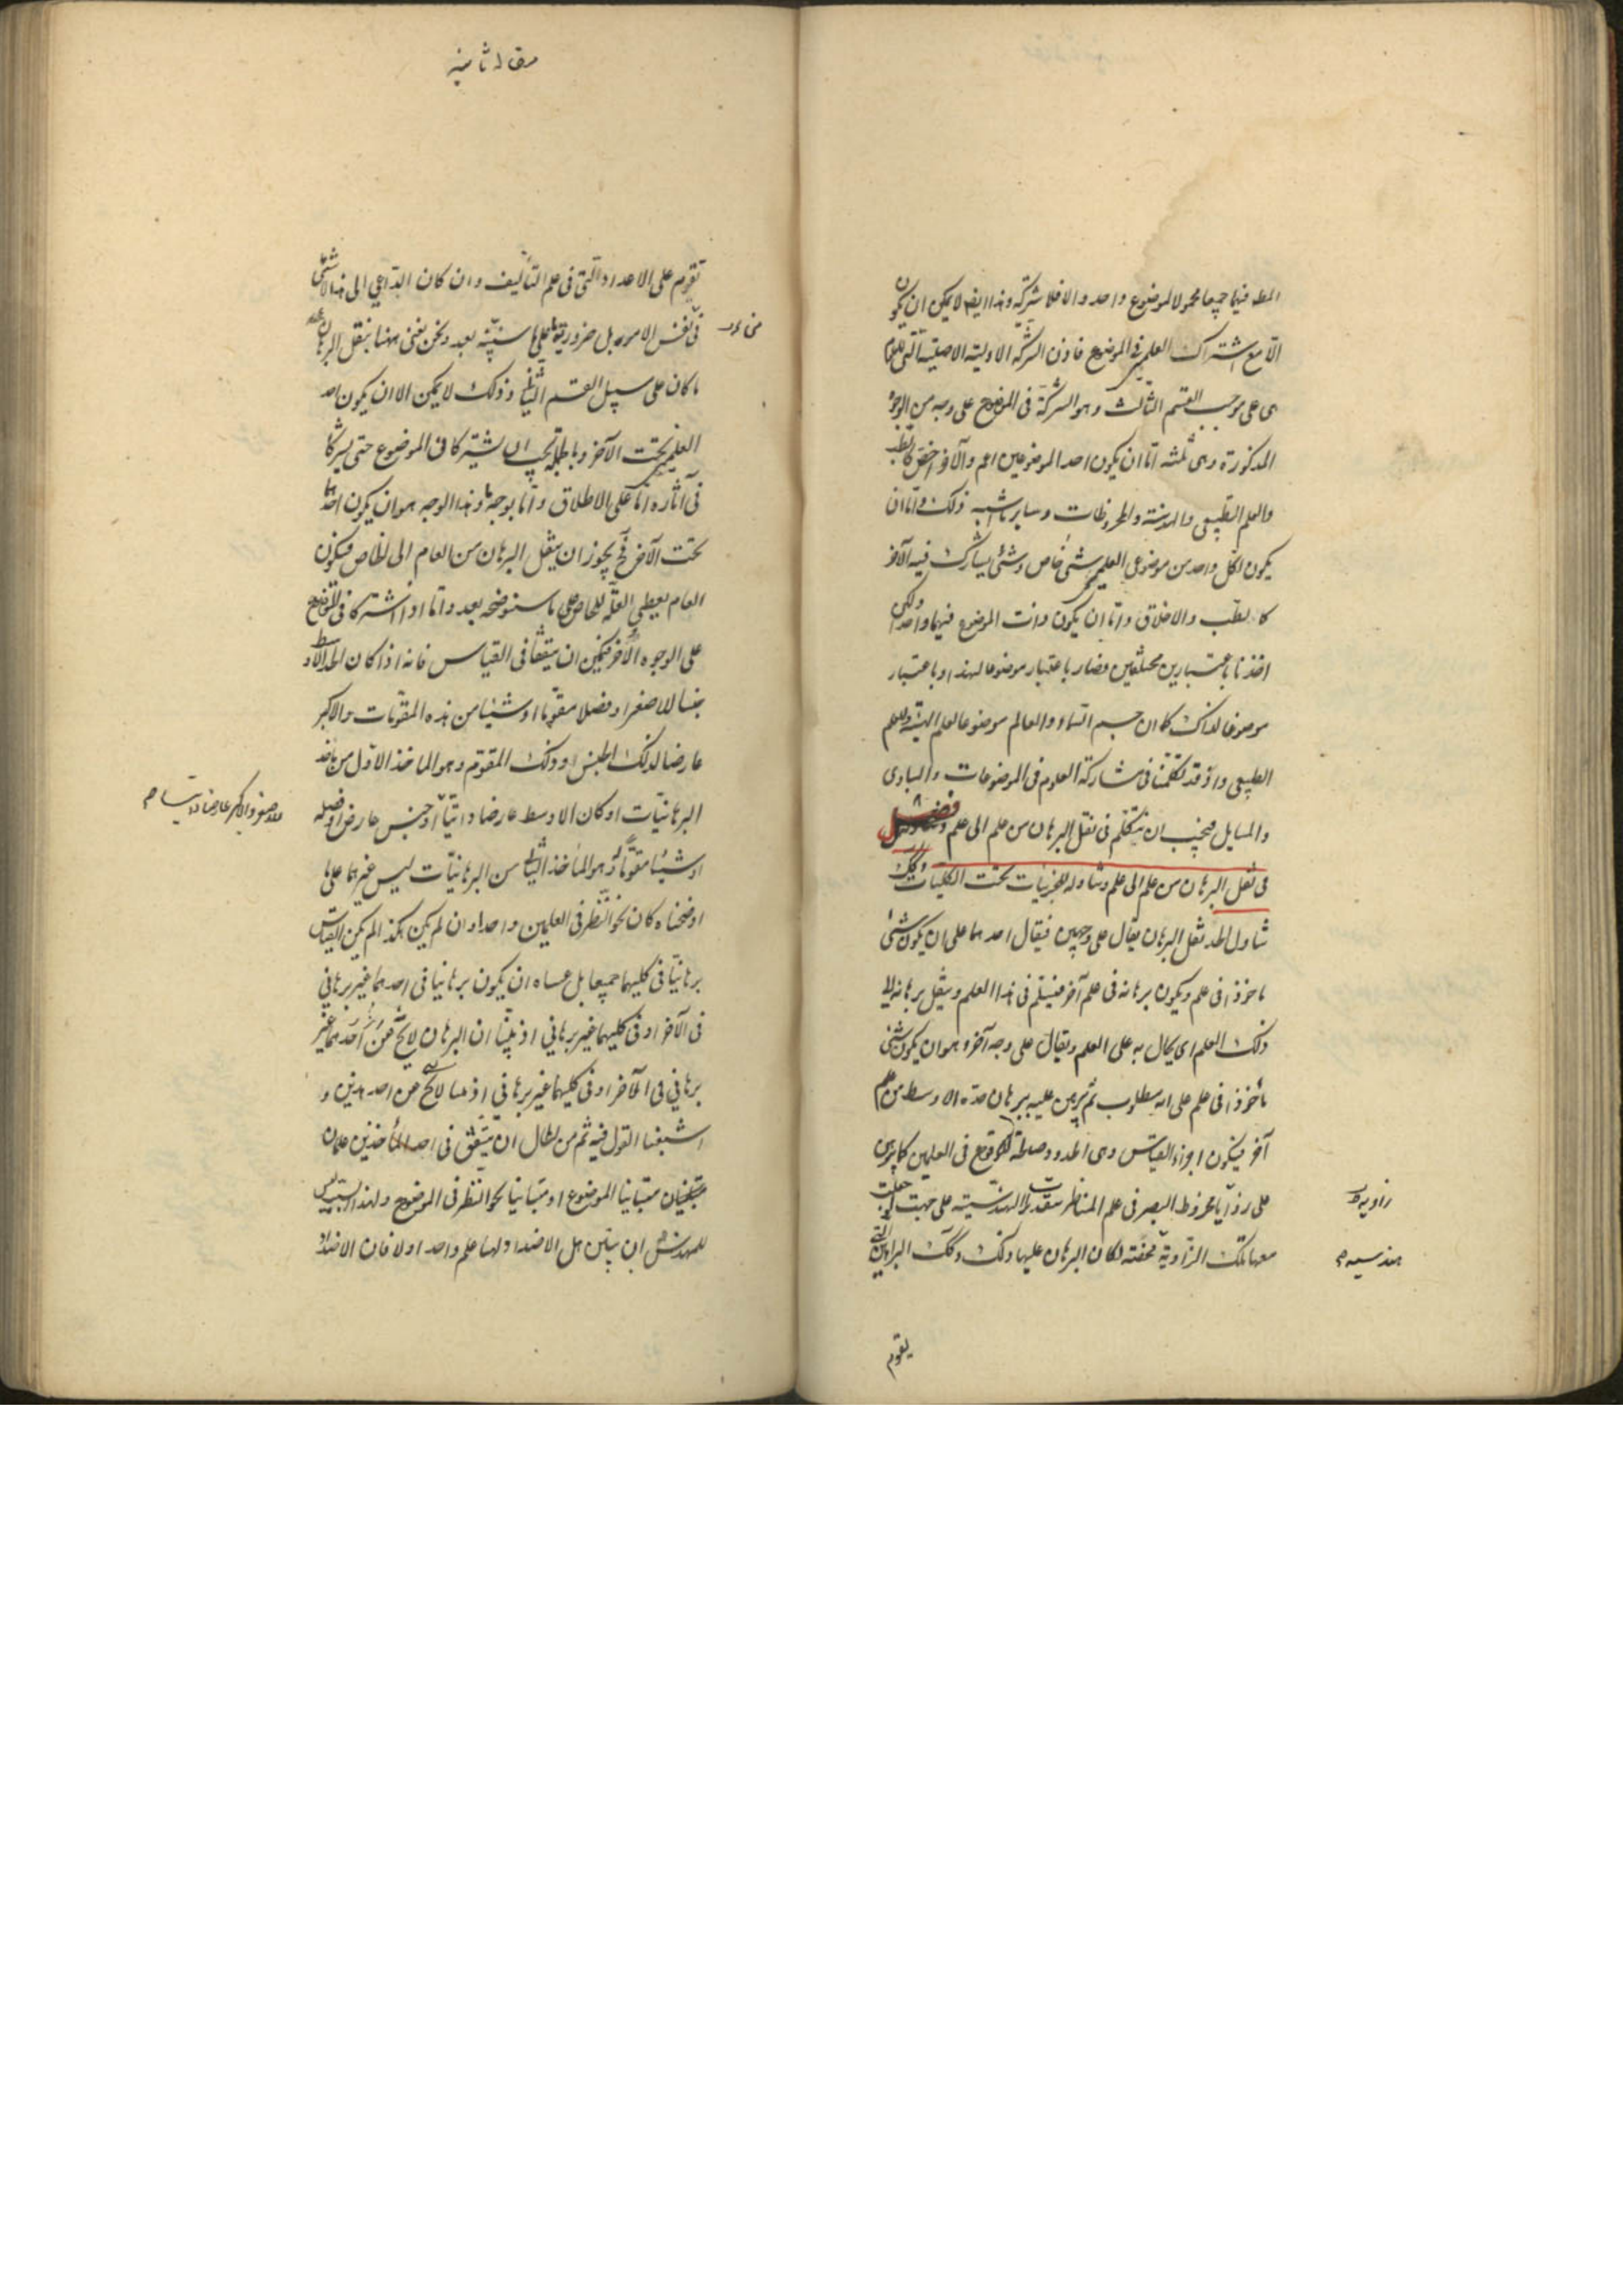 المط فيهما جميعا محمولا لموضوع واحد والا فلا شركة وهذا ايضا لا يمكن ان يكون
الا مع اشتراك العلمين في الموضوع فاذن الشركة الاولية الاصلية التي للعلوم
هى على موجب القسم الثالث وهو الشركة فى الموضوع على وجه من الوجوه
المذكورة وهى ثلثه اما ان يكون احد الموضوعين اعم والآخر اخص كالطب
والعلم الطبيعى والهندسة والمخروطات وساير ما اشبه ذلك واما ان
يكون لكل واحد من موضوعى العلمين شئ خاص وشئ يشارك فيه الآخر
كالطب والاخلاق واما ان يكون ذات الموضوع فيهما واحدا ولكن
اخذنا باعتبارين مختلفين فصار باعتبار موضوعا لهذا وباعتبار
موضوعا لذاك كما ان جسم السماء والعالم موضوعا لعلم الهيئة وللعلم
الطبيعى واذ قد تكلمنا فى مشاركة العلوم فى الموضوعات والمبادى
والمسايل فيجب ان نتكلم فى نقل البرهان من علم الى علم
فصل
فى نقل البرهان من علم الى علم وتناوله للجزئيات تحت الكليات وكذلك
تناول الحد نقل البرهان يقال على وجهين فيقال احدهما على ان يكون شئ
ماخوذا فى علم ويكون برهانه فى علم آخر فيتسلم فى هذا العلم وينقل برهانه الى
ذلك العلم اى يحال به على العلم ويقال على وجه آخر وهو ان يكون شئ
مأخوذا فى علم على انه مطلوب ثم يبرهن عليه ببرهان حده الاوسط من علم
آخر فيكون اجزاء القياس وهى الحدود صالحة للوقوع فى العلمين كما يبرهن
على زوايا مخروط البصر فى علم المناظر بتقديرات الهندسية على جهت لو جعلت
زاوية
معها تلك الزاوية محضة لكان البرهان عليها ذلك وكذلك البراهين التى
هندسيه م
يقوم
مقاله ثانيه
تقوم على الاعداد التى فى علم التأليف وان كان الداعى الى هذا
فى نفس الامر بل ضرورية على ما سنبينه بعد ونحن نعنى ههنا بنقل البرهان
ما كان على سبيل القسم الثانى وذلك لا يمكن الا ان يكون احد
العلمين تحت الآخر وبالجملة يجب ان يشتركا فى الموضوع حتى يشتركا
فى آثاره اما على الاطلاق واما بوجه ما وهذا الوجه هو ان يكون احدهما
تحت الآخر فح يجوز ان ينقل البرهان من العام الى الخاص فيكون
العام يعطى العلة للخاص على ما سنوضحه بعد واما اذا اشتركا فى الموضوع
على الوجوه الأخر فيمكن ان يتفقا فى القياس فانه اذا كان الحد الاوسط
جنسا للاصغر او فصلا مقوما او شيئا من هذه المقومات والاكبر
عارضا لذلك الجنس او ذلك المقوم وهو الماخذ الاول من ماخذ
البرهانيات او كان الاوسط عارضا ذاتيا او جنس عارض او فصله
للاصغر والاكبر عارضا ذاتيا م
او شيئا مقوما له وهو المأخذ الثانى من البرهانيات ليس غيرهما على ما
اوضحناه كان نحو النظر فى العلمين واحدا وان لم يكن هكذا لم يكن القياس
برهانيا فى كليهما جميعا بل عساه ان يكون برهانيا فى احدهما غير برهانى
فى الآخر او فى كليهما غير برهانى اذ بينا ان البرهان لا يخ من احدهما غير
برهانى فى الآخر او فى كليهما غير برهانى اذ لا يخ من احد هذين و
اشبعنا القول فيه ثم من المحال ان يتفق فى احد المأخذين علمان
متباينا الموضوع او متباينا نحو النظر فى الموضوع ولهذا ليس
للمهندس ان يبين هل الاضداد لها علم واحد او لا فان الاضداد